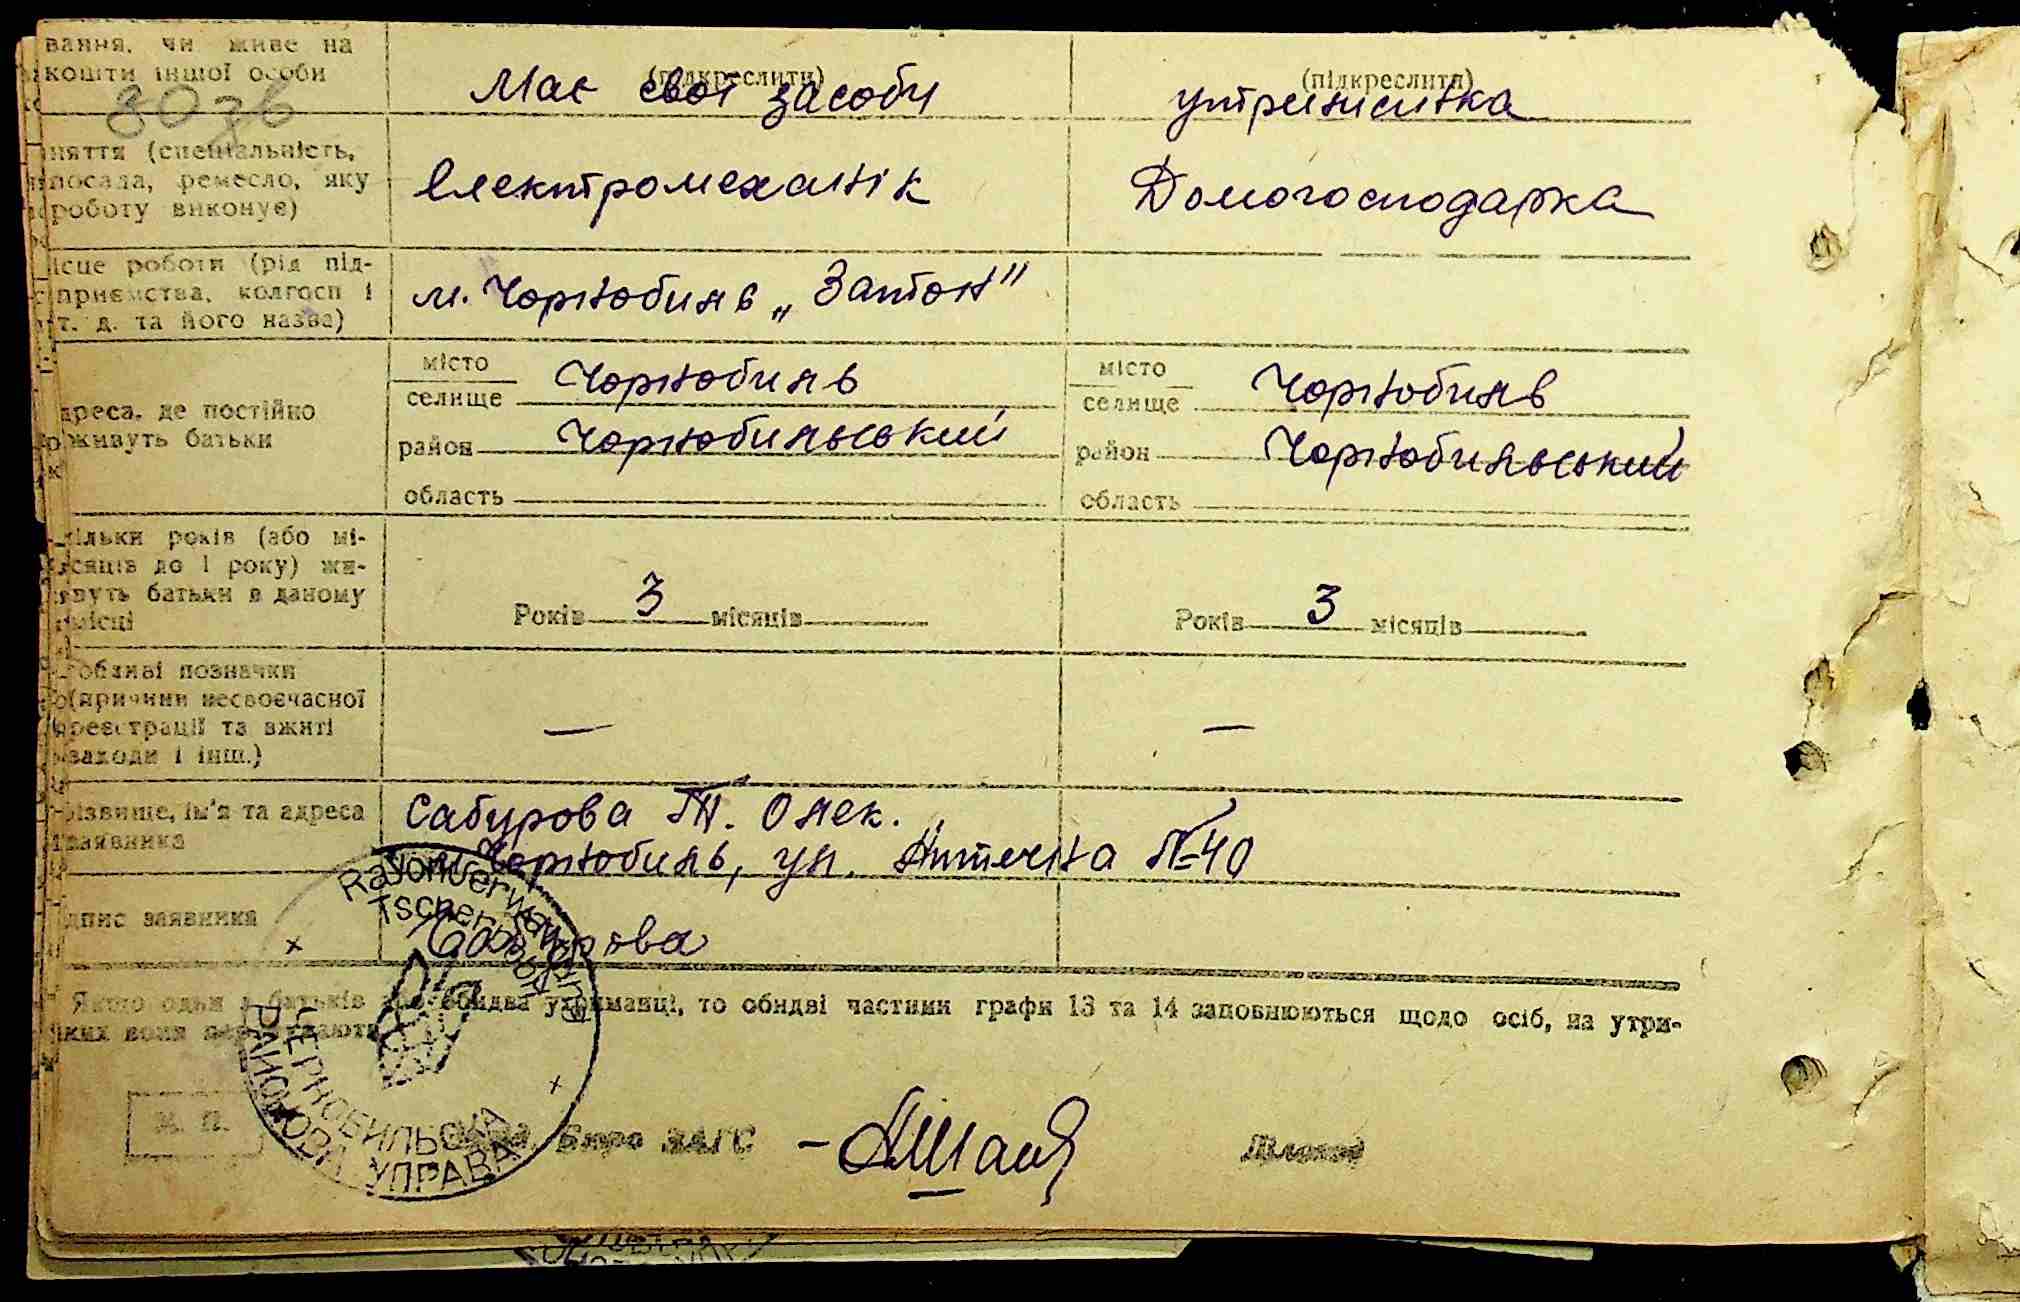 вання, чи живе на
кошти іншої особи
(підкреслити)
Має свої засоби
(підкреслити)
утриманка
няття (спеціальність,
посада, ремесло, яку
роботу виконує)
Електромеханік
Домогосподарка
ісце роботи (рід під-
приємства, колгосп і
т. д. та його назва)
м. Чорнобиль „Затон"
дреса, де постійно
живуть батьки
місто
селище
Чорнобиль
район Чорнобильський
область
місто
селище
Чорнобиль
район Чорнобильський
область
ільки років (або мі-
сяців до 1 року) жи-
вуть батьки в даному
місці
Років 3 місяців
Років 3 місяців
собливі позначки
(причини несвоєчасної
реєстрації та вжиті
заходи і інш.)
—
—
різвище, ім'я та адреса
заявника
Сабурова Т. Олек.
Чорнобиль, ул. Аптечна №40
дпис заявника
Сабурова
Якщо один з батьків або обидва утриманці, то обидві частини графи 13 та 14 заповнюються щодо осіб, на утри-
яких вони перебувають
Rayonverwaltung
Tschernobil
ЧЕРНОБИЛЬСЬКА
РАЙОНОВА УПРАВА
М. П.
Бюро ЗАГС